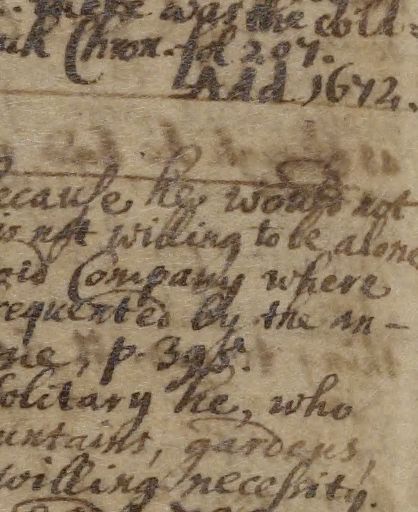 there was the cold-
Chron. fol 207.
Add 1672.
because he would not
is not willing to be alone
Company where
requented by the an-
me, p. 398.
solitary he, who
untains, gardens,
willing necessity.